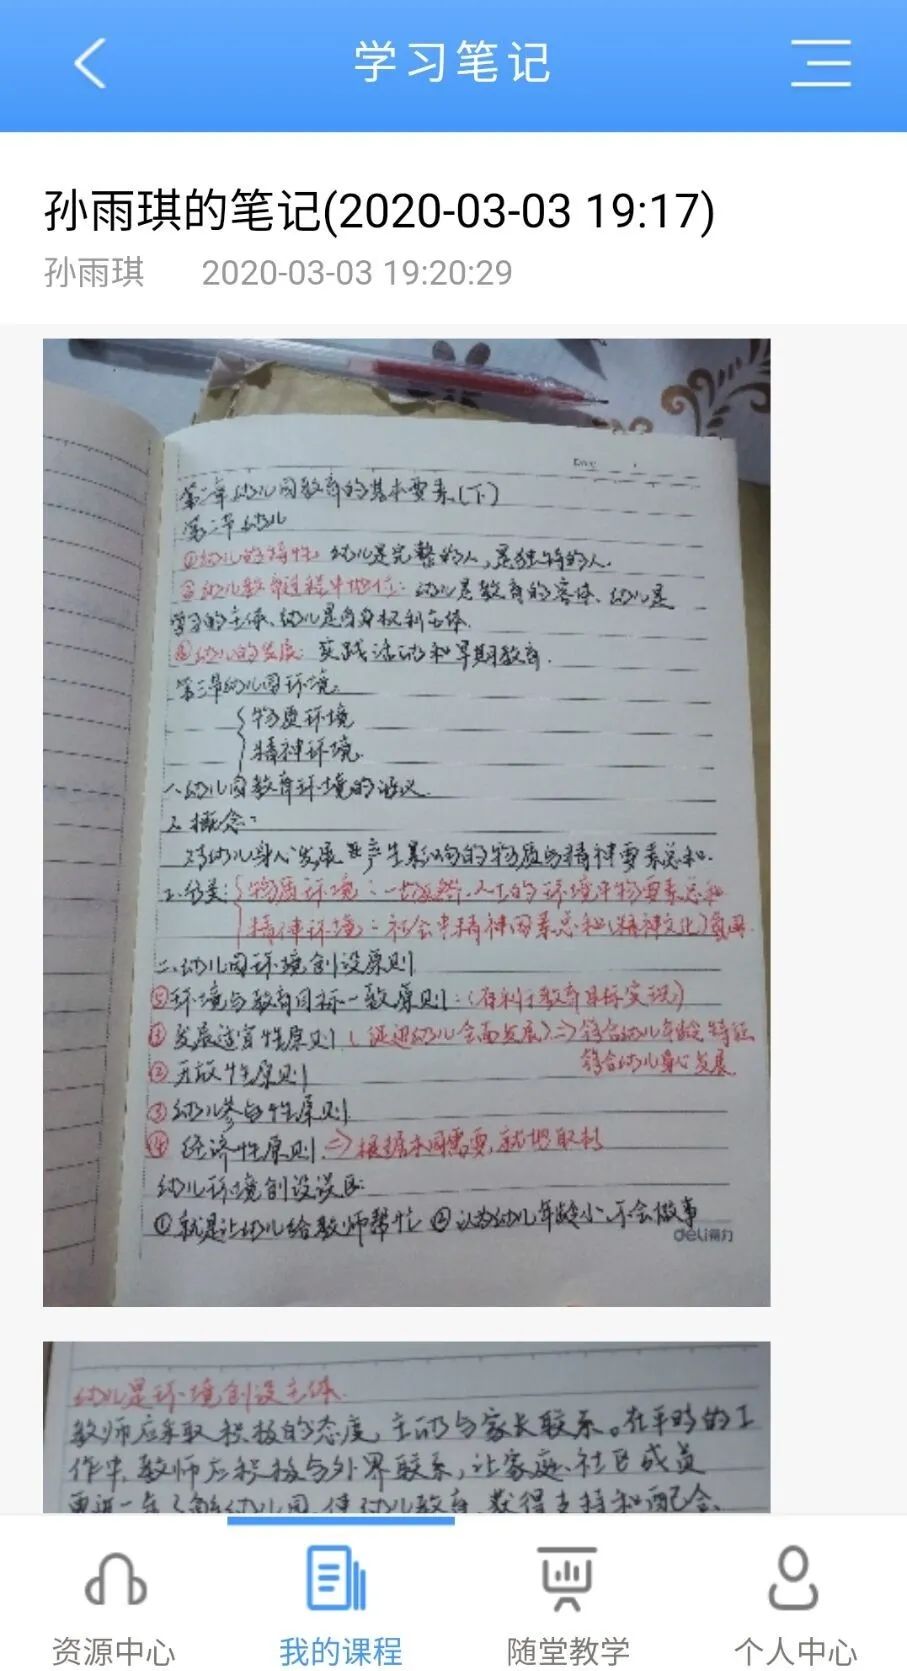 学习笔记
孙雨琪的笔记(2020-03-03 19:17)
孙雨琪 2020-03-03 19:20:29
Date
第二章幼儿园教育的基本要素(下)
第二节幼儿
①幼儿的特性: 幼儿是完整的人,是独特的人.
②幼儿教育过程中地位: 幼儿是教育的客体、幼儿是
学习的主体、幼儿是自身权利主体.
③幼儿的发展: 实践活动和早期教育.
第三节幼儿园环境.
物质环境
精神环境.
一、幼儿园教育环境的涵义.
1. 概念:
对幼儿身心发展产生影响的物质与精神要素总和.
2.分类: 物质环境: 一切天然、人工的环境中物要素总和
精神环境: 社会中精神因素总和(精神文化)氛围.
二、幼儿园环境创设原则
⑤环境与教育目标一致原则: (有利于教育目标实现)
①发展适宜性原则 (促进幼儿全面发展)⇒符合幼儿年龄特征
符合幼儿身心发展.
②开放性原则
③幼儿参与性原则
④经济性原则⇒根据本园需要,就地取材
幼儿环境创设误区:
①就是让幼儿给教师帮忙 ②认为幼儿年龄小、不会做事
deli得力
幼儿是环境创设主体.
教师应采取积极的态度,主动与家长联系。在平时的工
作中,教师应积极与外界联系,让家庭、社区成员
更进一步了解幼儿园,使幼儿教育获得支持和配合.
资源中心 我的课程 随堂教学 个人中心